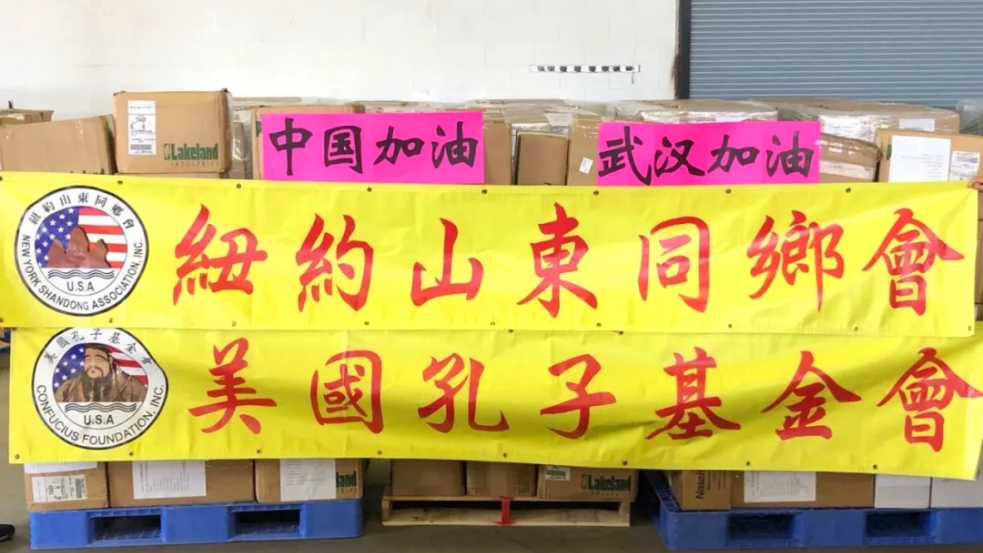 Lakeland
INDUSTRIES
中国加油
武汉加油
紐約山東同鄉會
NEW YORK SHANDONG ASSOCIATION, INC.
U.S.A
紐約山東同鄉會
美國孔子基金會
CONFUCIUS FOUNDATION, INC.
U.S.A
美國孔子基金會
Lakeland